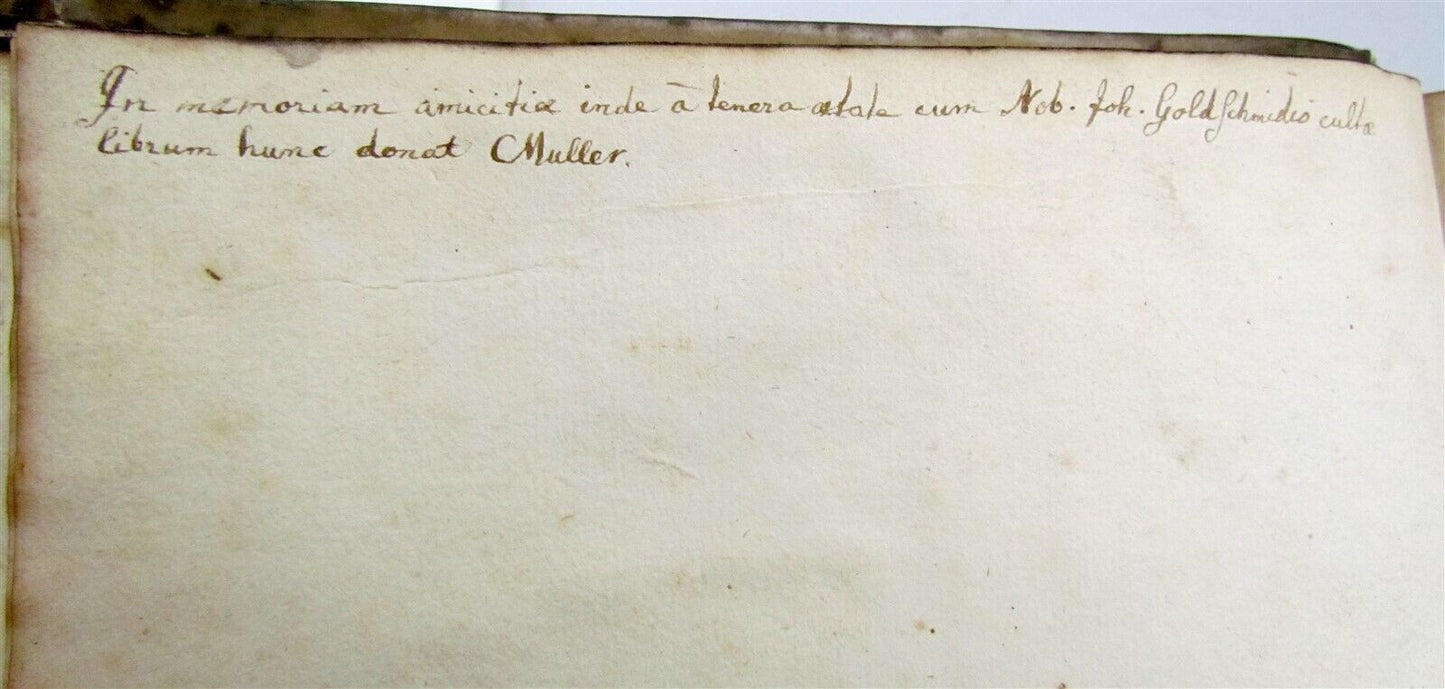 In memoriam amicitiæ inde à tenera ætate cum Nob. Joh. Goldschmidio cultæ
librum hunc donat CMuller.